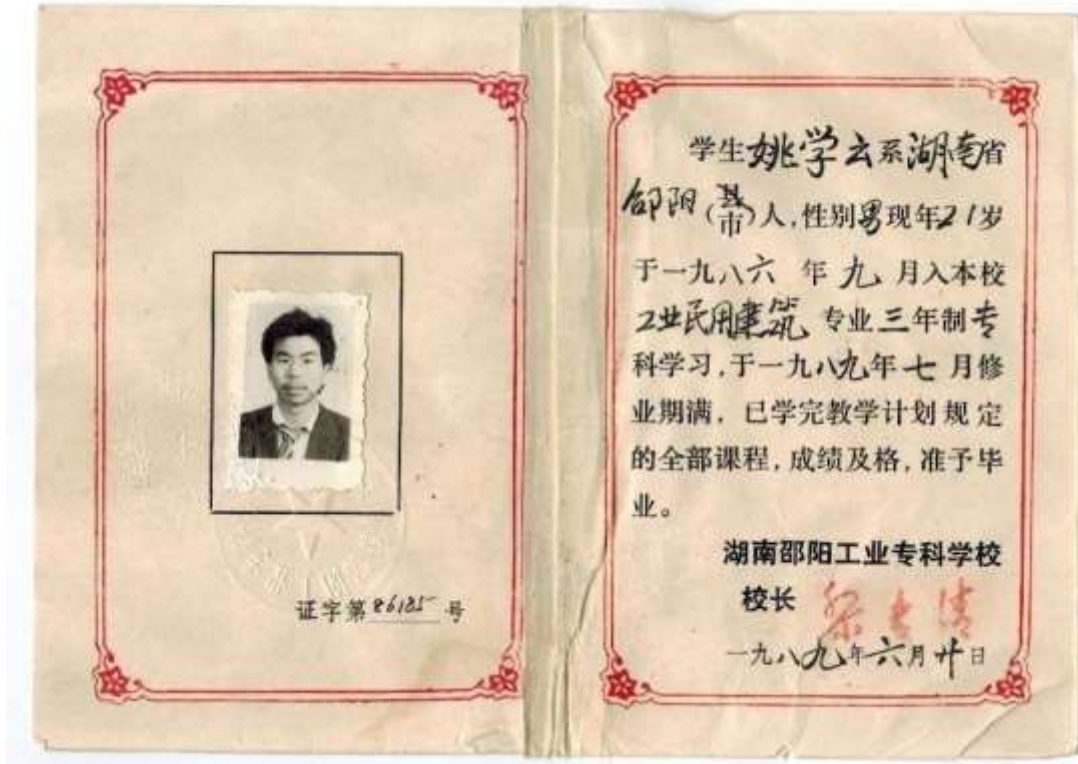 证字第86185号
学生姚学云系湖南省
邵阳(县市)人,性别男现年21岁
于一九八六 年 九 月入本校
工业民用建筑 专业三年制专
科学习,于一九八九年七月修
业期满,已学完教学计划规定
的全部课程,成绩及格,准予毕
业。
湖南邵阳工业专科学校
校长
一九八九年六月廿日